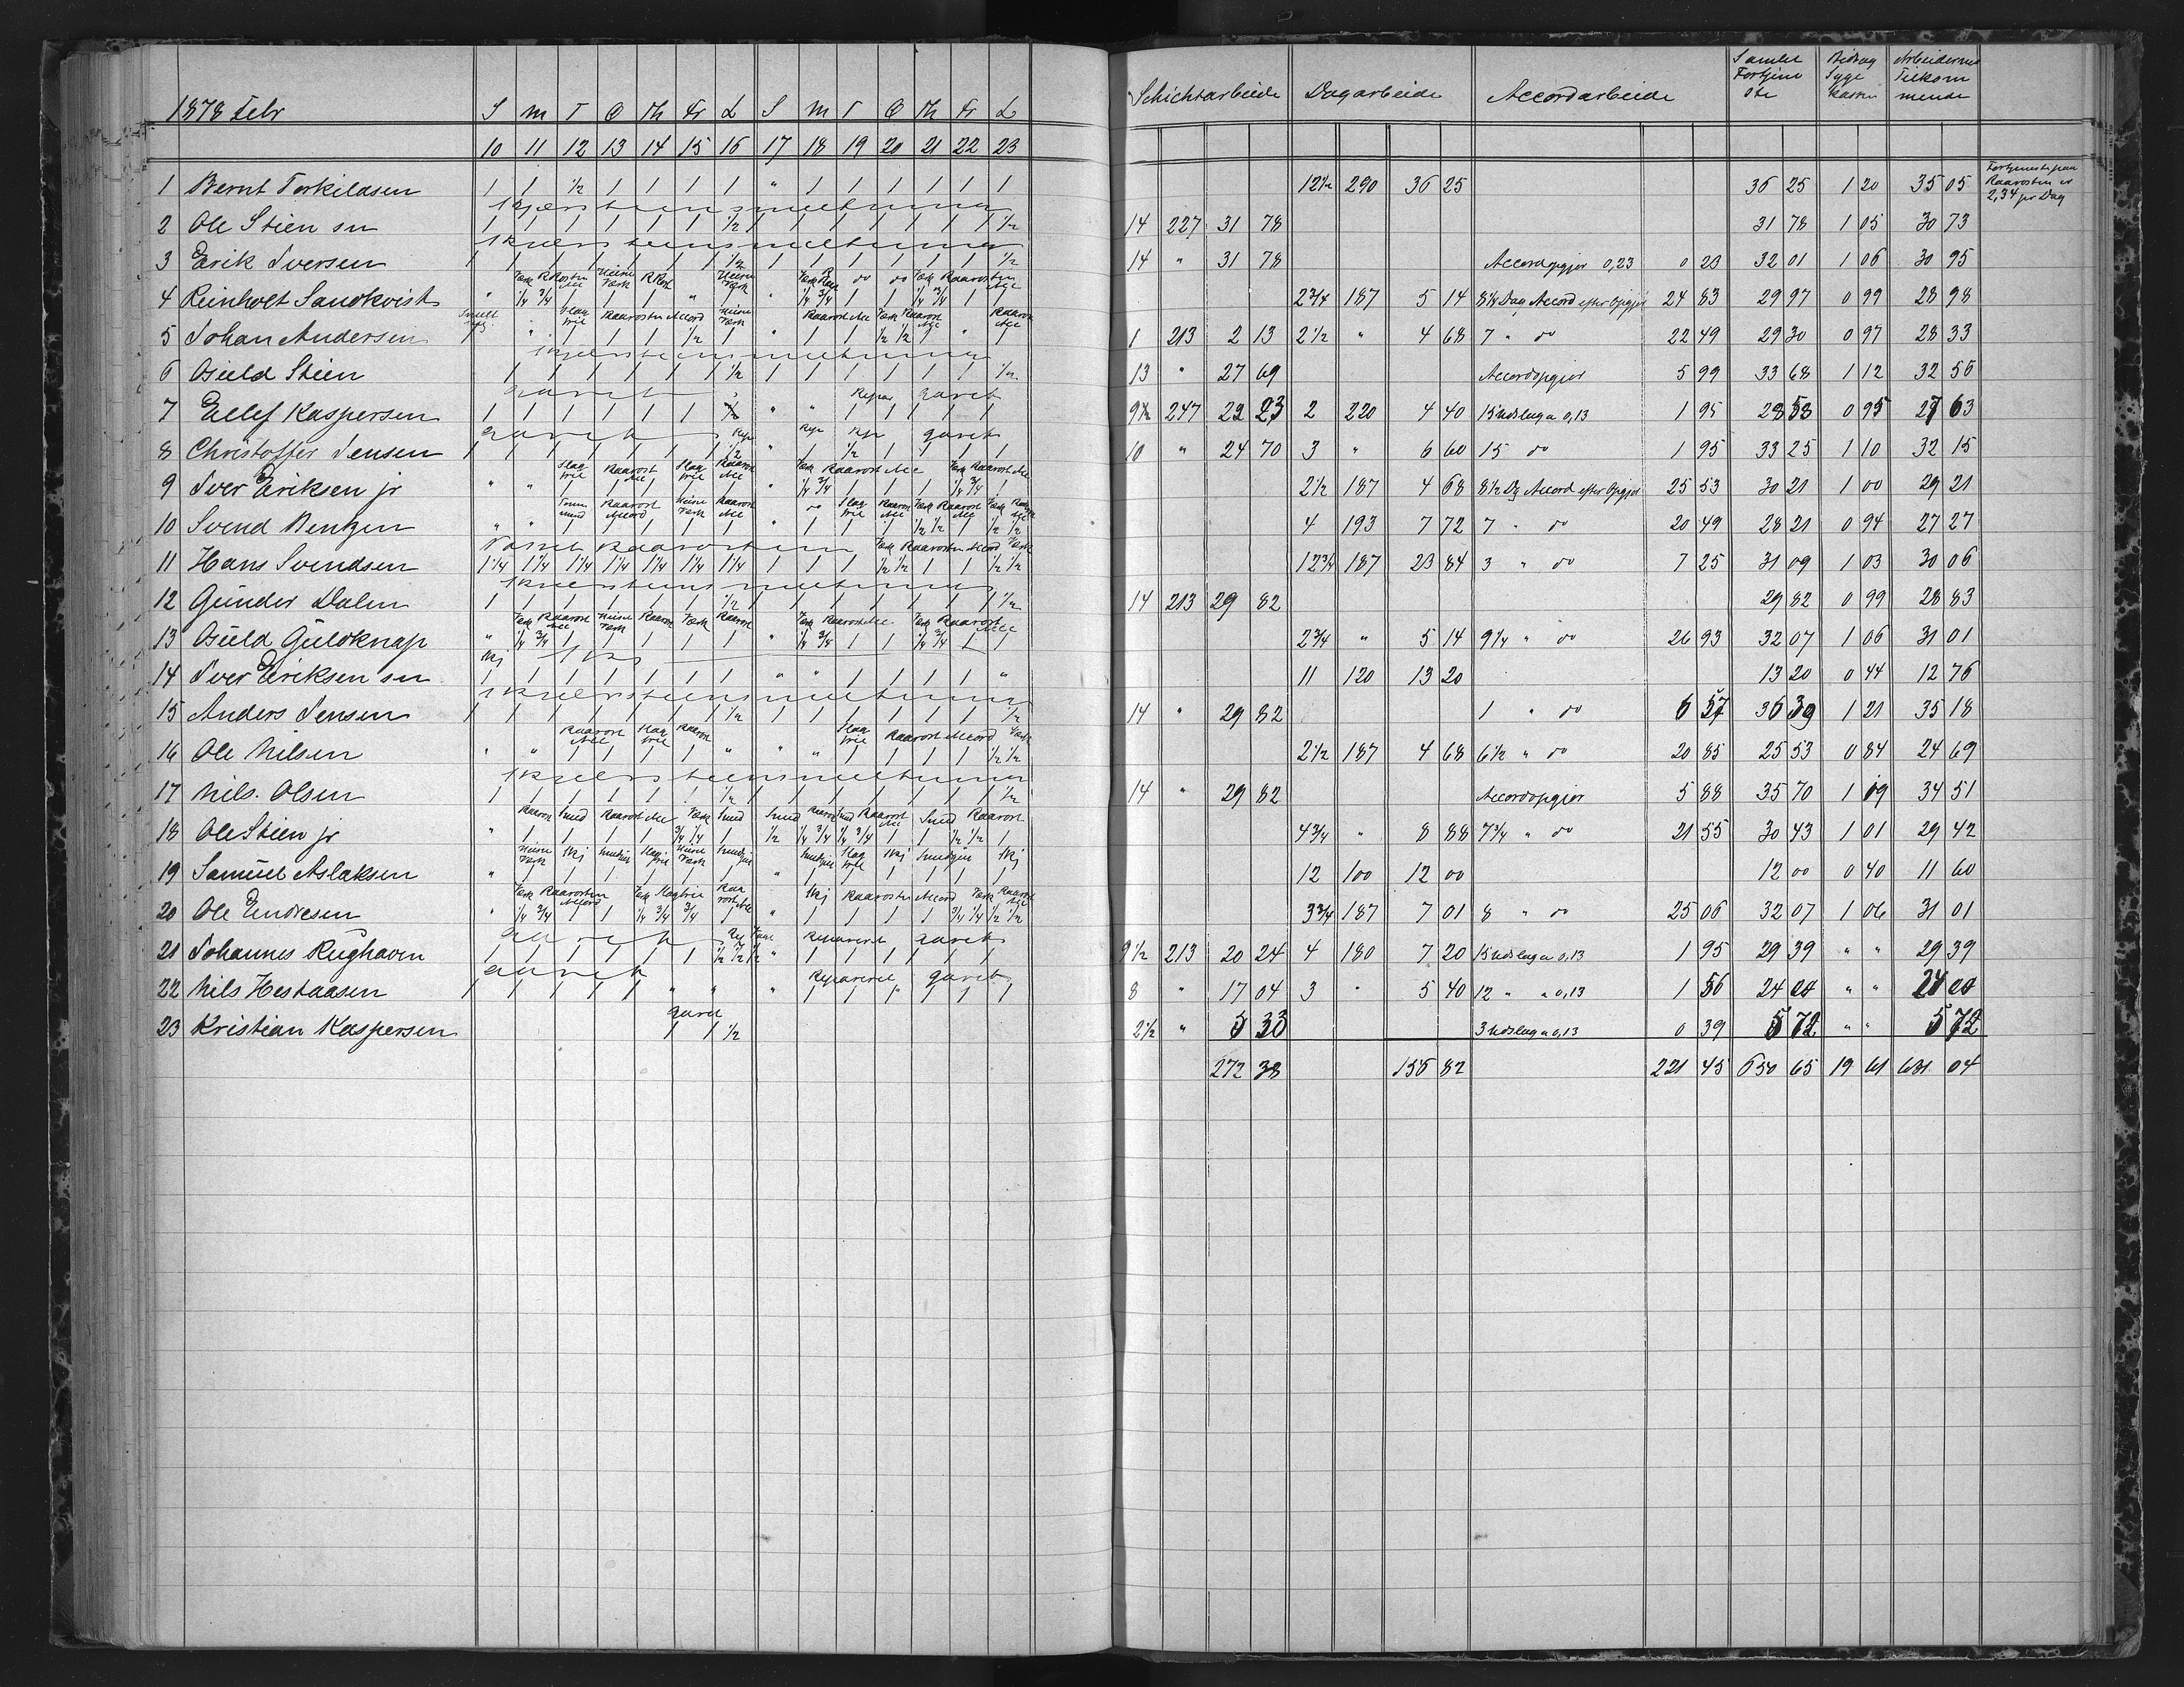 1878 Febr S M T O Th Fr L S M T O Th Fr L Schichtarbeide Dagarbeide Accordarbeide Samlet Fortjeneste Bidrag Syge Kassen Arbeidernes Tilkommende
10 11 12 13 14 15 16 17 18 19 20 21 22 23
Fortjeneste paa Raarosten er 2,34 pr Dag
1 Bernt Torkildsen 1 1 1/2 1 1 1 1 " 1 1 1 1 1 1 12 1/2 290 36 25 36 25 1 20 35 05
Skjærsteensmeltningen
2 Ole Stien sn 1 1 1 1 1 1 1/2 1 1 1 1 1 1 1/2 14 227 31 78 31 78 1 05 30 73
Skjærsteensmeltningen
3 Erik Iversen 1 1 1 1 1 1 1/2 1 1 1 1 1 1 1/2 14 " 31 78 Accordopgjør 0,23 0 23 32 01 1 06 30 95
4 Reinholt Sandkvist " 1/4 3/4 1 1 1 " 1 " 1/4 3/4 1 1 1/4 3/4 1 1 2 3/4 187 5 14 8 1/4 Dag Accord efter Opgjør 24 83 29 97 0 99 28 98
5 Johan Andersen 1 213 2 13 2 1/2 " 4 68 7 " do 22 49 29 30 0 97 28 33
Skjærsteensmeltningen
6 Osuld Stien 1 1 1 1 1 1/2 1 1 1 1 1 1 1/2 13 " 27 69 Accordopgjør 5 99 33 68 1 12 32 56
Gaaret Repar Gaaret
7 Ellef Kaspersen 1 1 1 1 1 1 1/2 " " 1 1 1 1 1 9 1/2 247 22 23 2 220 4 40 15 Udslag a 0,13 1 95 28 58 0 95 27 63
Gaaret Rep Rep Rep gaaret
8 Christoffer Jensen 10 " 24 70 3 " 6 60 15 do 1 95 33 25 1 10 32 15
9 Iver Eriksen jr 2 1/2 187 4 68 8 1/2 Dg Accord efter Opgjør 25 53 30 21 1 00 29 21
10 Svend Bentzen 4 193 7 72 7 " do 20 49 28 21 0 94 27 27
11 Hans Svendsen 1 1/4 1 1/4 1 1/4 1 1/4 1 1/4 1 1/4 1 1/4 1 1 1 1/2 1/2 1 1 1/2 1/2 12 3/4 187 23 84 3 " do 7 25 31 09 1 03 30 06
Skjærsteensmeltningen
12 Gunder Dalen 1 1 1 1 1 1 1/2 1 1 1 1 1 1 1/2 14 213 29 82 29 82 0 99 28 83
13 Osuld Guldknap " 1/4 3/4 1 1 1 1 1 " 1/4 3/4 1 1 1/4 3/4 1 1 2 3/4 " 5 14 9 1/4 " do 26 93 32 07 1 06 31 01
14 Iver Eriksen sn 1 1 1 1 1 1 1 " " 1 1 1 1 " 11 120 13 20 13 20 0 44 12 76
Skjærsteensmeltningen
15 Anders Jensen 1 1 1 1 1 1 1/2 1 1 1 1 1 1 1/2 14 " 29 82 1 " do 6 57 36 39 1 21 35 18
16 Ole Nilsen " " 1 1 1 1 " " " 1 1 1 1 1/2 1/2 2 1/2 187 4 68 6 1/2 " do 20 85 25 53 0 84 24 69
Skjærsteensmeltningen
17 Nils Olsen 1 1 1 1 1 1 1/2 1 1 1 1 1 1 1/2 14 " 29 82 Accordopgjør 5 88 35 70 1 19 34 51
18 Ole Stien jr 4 3/4 " 8 88 7 3/4 " do 21 55 30 43 1 01 29 42
19 Samuel Aslaksen " 1 1 1 1 1 1 " 1 1 1 1 1 1 12 100 12 00 12 00 0 40 11 60
20 Ole Endresen 3 3/4 187 7 01 8 " do 25 06 32 07 1 06 31 01
Gaaret Repareret Gaaret
21 Johannes Rughaven 9 1/2 213 20 24 4 180 7 20 15 Udslag a 0,13 1 95 29 39 " " 29 39
Gaaret Repareret gaaret
22 Nils Hestaasen 1 1 1 1 1 " " " 1 1 1 1 1 1 8 " 17 04 3 " 5 40 12 " a 0,13 1 56 24 00 " " 24 00
Gaaret
23 Kristian Kaspersen 1 1 1/2 2 1/2 " 5 33 3 Udslag a 0,13 0 39 5 72 " " 5 72
272 38 156 82 221 45 650 65 19 61 631 04